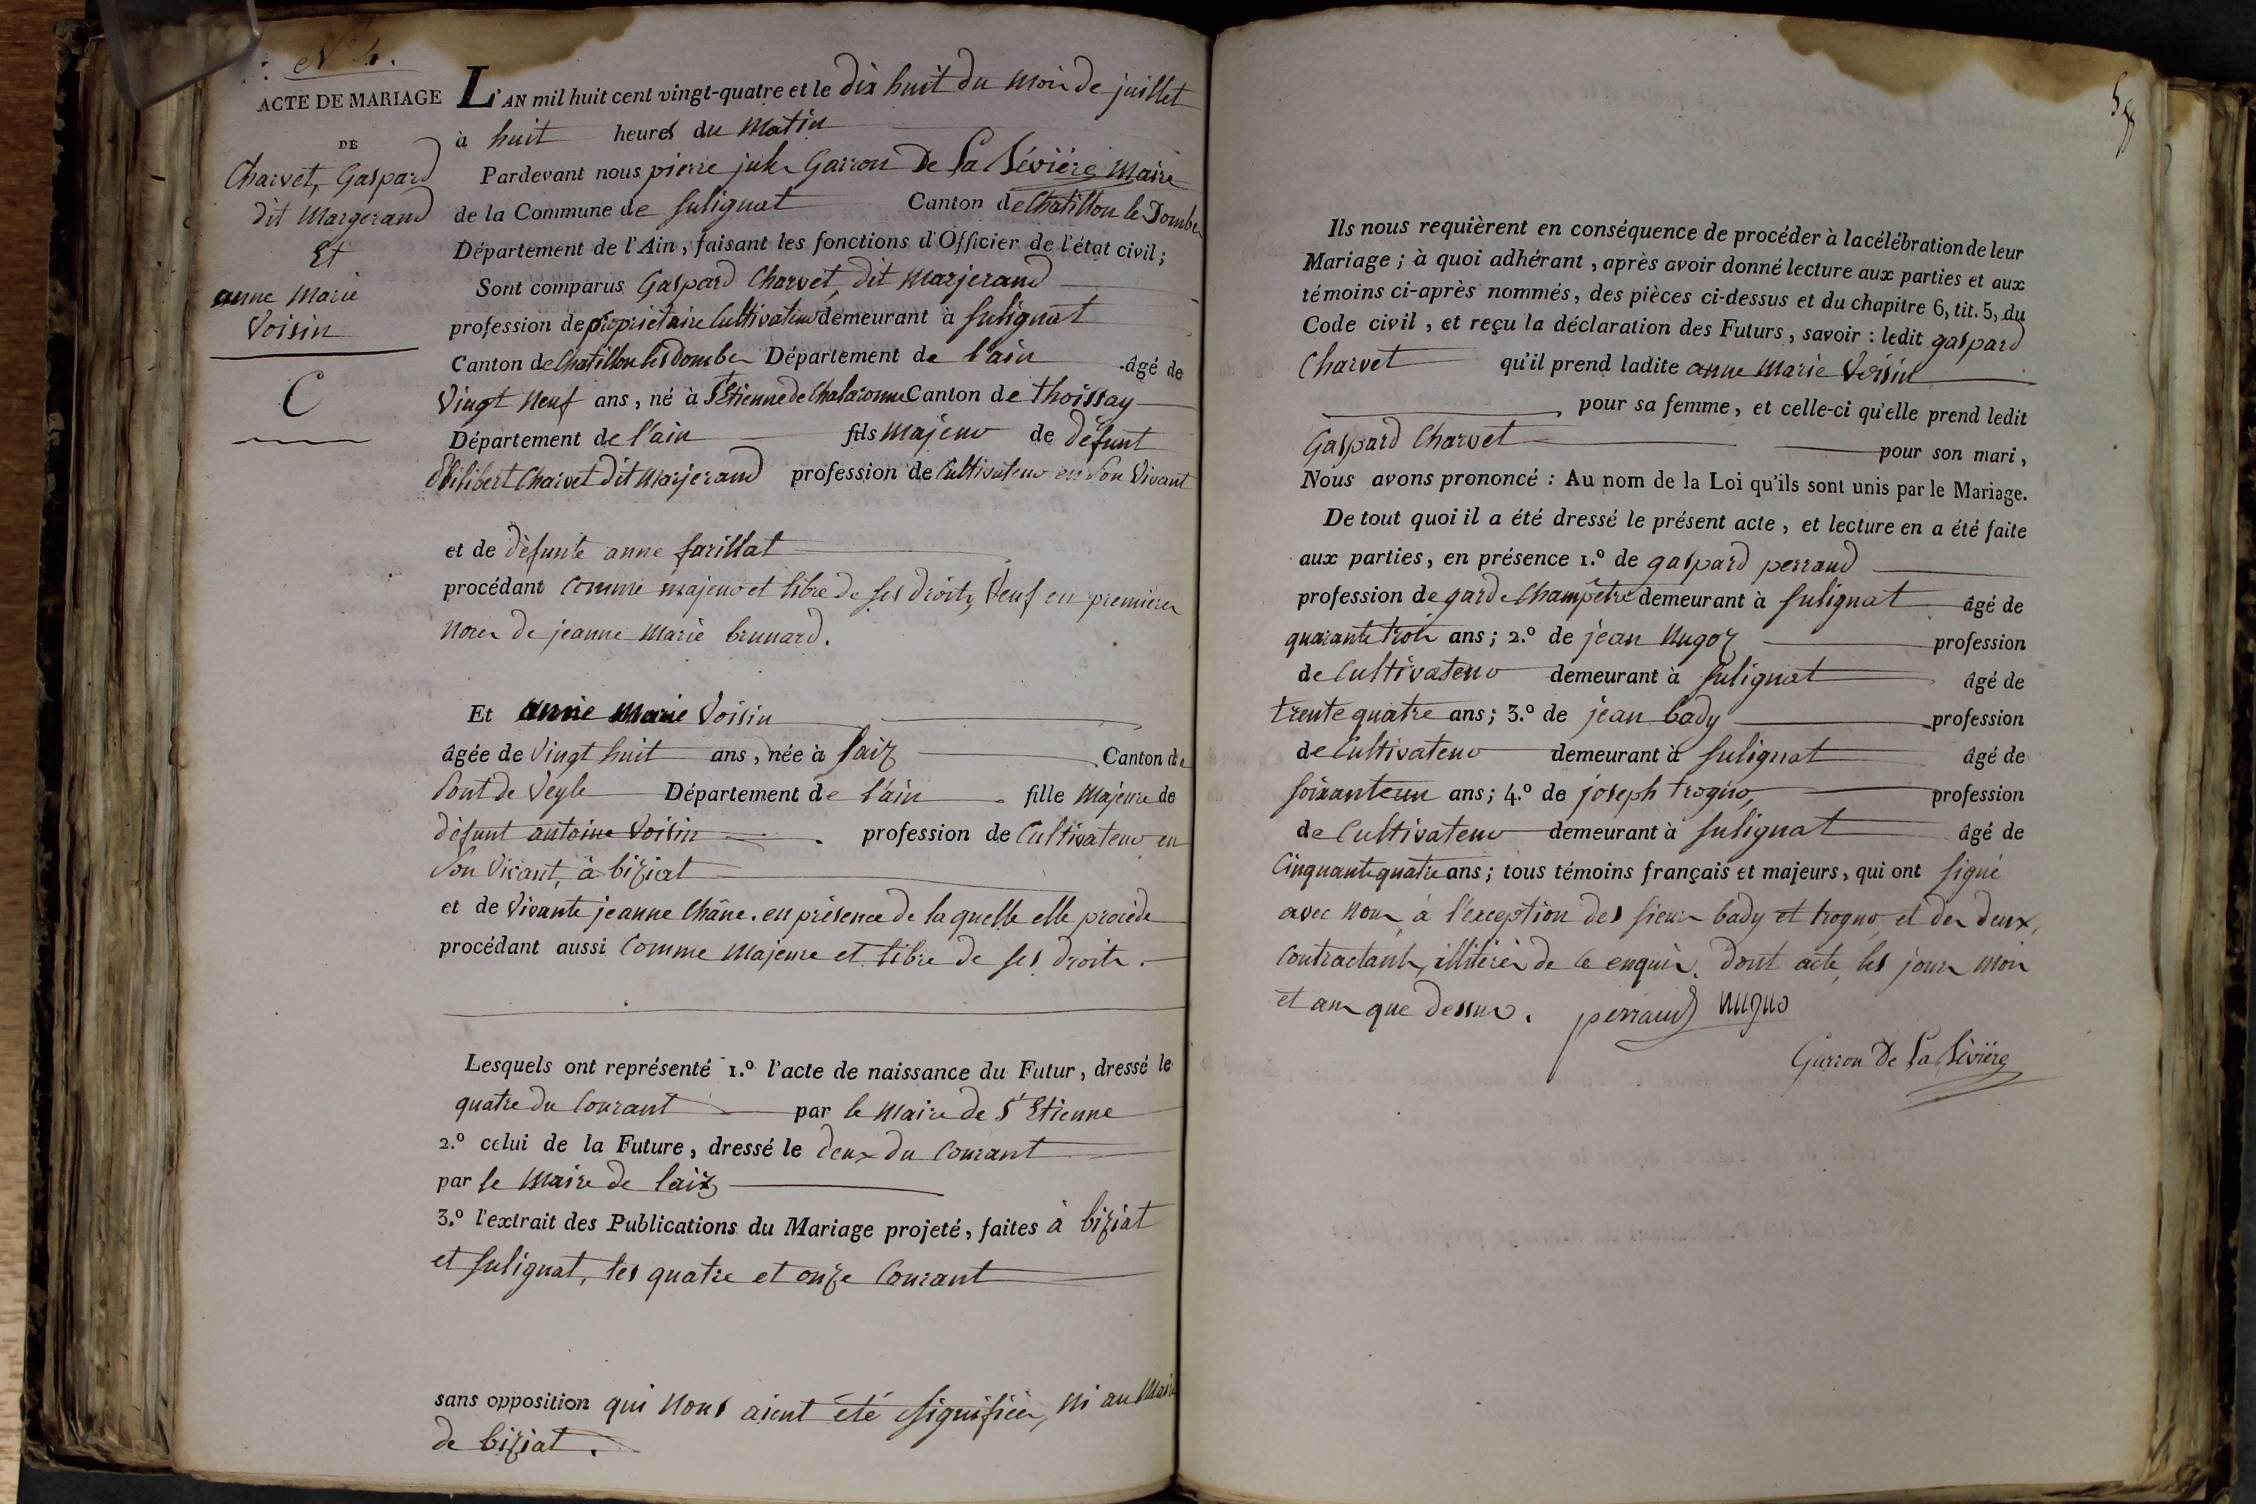 N° 4.
ACTE DE MARIAGE
DE
Charvet, Gaspard
dit Margerand
Et
anne Marie
Voisin
C
L'AN mil huit cent vingt-quatre et le dix huit du mois de juillet
à huit heures du Matin
Pardevant nous pierre jules Garron De La Sévière Maire
de la Commune de Sulignat Canton de Chatillon les Dombes
Département de l'Ain, faisant les fonctions d'Officier de l'état civil;
Sont comparus Gaspard Charvet, dit Marjerand
profession de propriétaire Cultivateur demeurant à Sulignat
Canton de Chatillon les Dombes Département de l'ain âgé de
Vingt Neuf ans, né à St Etienne de Chalaronne Canton de Thoissay
Département de l'ain fils Majeur de défunt
Philibert Charvet dit Marjerand profession de Cultivateur en Son Vivant
et de défunte anne farillat
procédant comme majeur et libre de ses droits, Veuf en premières
Noces de jeanne Marie brunard.
Et anne Marie Voisin
âgée de Vingt huit ans, née à Laiz Canton de
Pont de Veyle Département de l'ain fille Majeure de
défunt antoine Voisin profession de Cultivateur en
Son Vivant, à biziat
et de Vivante jeanne Châne. en présence de laquelle elle procède
procédant aussi Comme Majeure et libre de ses droits.
Lesquels ont représenté 1.° l'acte de naissance du Futur, dressé le
quatre du Courant par le Maire de St Etienne
2.° celui de la Future, dressé le deux du Courant
par le Maire de Laiz
3.° l'extrait des Publications du Mariage projeté, faites à biziat
et Sulignat, les quatre et onze Courant
sans opposition qui Nous aient été Signifiées, ni au Maire
de biziat.
Ils nous requièrent en conséquence de procéder à la célébration de leur
Mariage; à quoi adhérant, après avoir donné lecture aux parties et aux
témoins ci-après nommés, des pièces ci-dessus et du chapitre 6, tit. 5, du
Code civil, et reçu la déclaration des Futurs, savoir : ledit gaspard
Charvet qu'il prend ladite anne Marie Voisin
pour sa femme, et celle-ci qu'elle prend ledit
Gaspard Charvet pour son mari,
Nous avons prononcé : Au nom de la Loi qu'ils sont unis par le Mariage.
De tout quoi il a été dressé le présent acte, et lecture en a été faite
aux parties, en présence 1.° de gaspard perraud
profession de garde Champêtre demeurant à Sulignat âgé de
quarante trois ans; 2.° de jean Nugoz profession
de Cultivateur demeurant à Sulignat âgé de
trente quatre ans; 3.° de jean bady profession
de Cultivateur demeurant à Sulignat âgé de
Soixante un ans; 4.° de joseph trogno profession
de Cultivateur demeurant à Sulignat âgé de
Cinquante quatre ans; tous témoins français et majeurs, qui ont Signé
avec Nous, à l'exception des sieurs bady et trogno, et des deux
Contractants, illitérés de ce enquis. Dont acte, les jour mois
et an que dessus. perraud nuguo
Garron De La Sévière